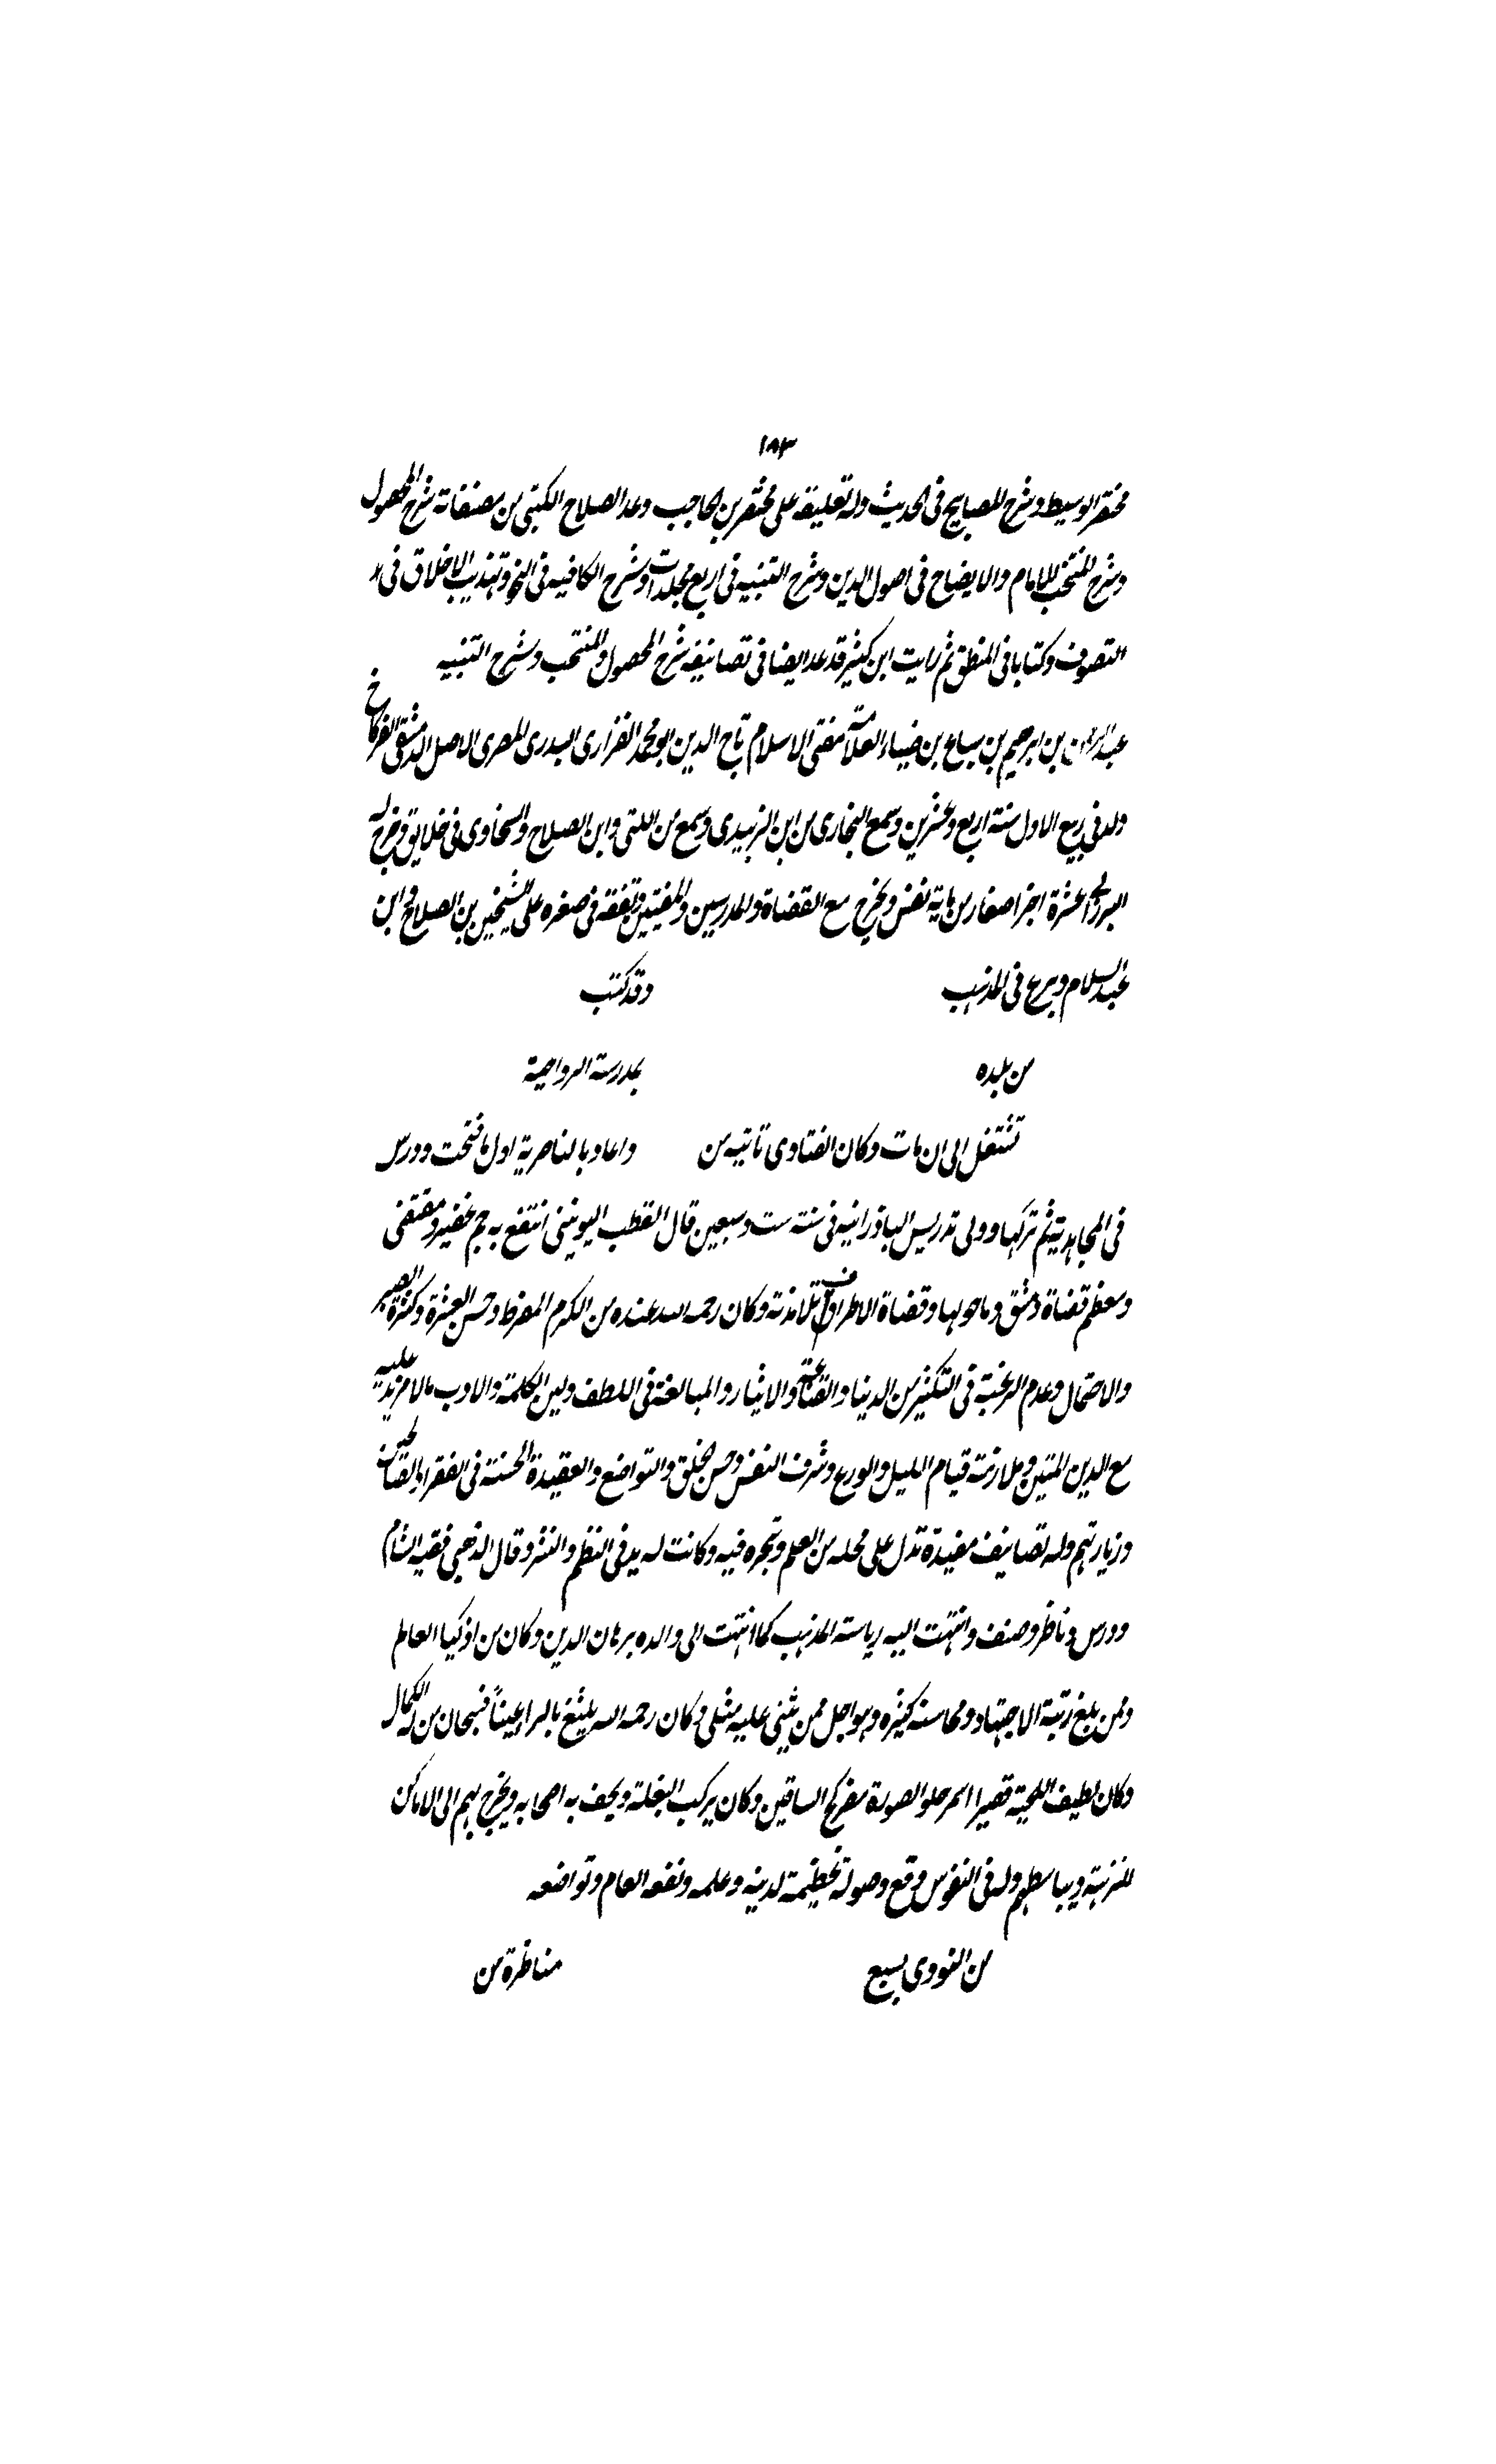 ١٨٣
مختصر الوسيط وشرح المصابيح فى الحديث وله تعليقة على مختصر بن الحاجب وعد الصلاح الكتبى من مصنفاته شرح المحصول
وشرح المنتخب للامام والايضاح فى اصول الدين وشرح التنبيه فى اربع مجلدات وشرح الكافيه فى النحو وتهذيب الاخلاق فى
التصوف وكتابا فى المنطق ثم رايت ابن كثير قد عد ايضا فى تصانيفه شرح المحصول والمنتخب وشرح التنبيه
عبد الرحمن بن ابرهيم بن سباع بن ضياء العلامة مفتى الاسلام تاج الدين ابو محمد الفزارى البدرى المصرى الاصل الدمشقى الفركاح
ولد فى ربيع الاول سنة اربع وعشرين وسمع البخارى من ابن الزبيدى وسمع من اللتى وابن الصلاح والسخاوى فى خلايق وخرج له
البرزالى عشرة اجزا صغار من ماية نفس وتخرج مع القضاة والمدرسين والمفتين وتفقه فى صغره على الشيخين بن الصلاح وابن
عبد السلام وبرع فى المذهب وقد كتب
من بلده بمدرسة الرواحية
تشتغل الى ان مات وكان الفتاوى تاتيه من واعاد بالناصرية اول ما فتحت ودرس
فى المجاهدية ثم تركها وولى تدريس الباذرانيه فى سنة ست وسبعين قال القطب اليونينى انتفع به جم غفير ومفتى
ومعظم قضاة دمشق وما حولها وقضاة الاطراف تلامذته وكان رحمه الله عنده من الكرم المفرط وحسن العشرة وكثرة الصبر
والاحتمال وعدم الرغبة فى التكثر من الدنيا والقناعة والايثار والمبالغة فى اللطف ولين الكلمة والادب مالا مزيد عليه
مع الدين المتين وملازمة قيام الليل والورع وشرف النفس وحسن الخلق والتواضع والعقيدة الحسنة فى الفقرا والصالحين
وزيارتهم وله تصانيف مفيدة تدل على محله من العلم وتبحره فيه وكانت له يد فى النظم والنثر وقال الذهبى فقيه الشام
ودرس وناظر وصنف وانتهت اليه رياسة المذهب كما انتهت الى والده برهان الدين وكان من اذكيا العالم
وممن بلغ رتبة الاجتهاد ومحاسنه كثيره وهو اجل ممن يثنى عليه مثلى وكان رحمه الله يلثغ بالرا غيناً فسبحان من له الكمال
وكان لطيف اللحية قصيرا اسمر حلو الصورة مفركح الساقين وكان يركب البغلة ويحف به اصحابه ويخرج بهم الى الاماكن
النزهة ويباسطهم وله فى النفوس وقع وصولة عظيمة لدينه وعلمه ونفعه العام وتواضعه
من النووى بسبع مناظرة من